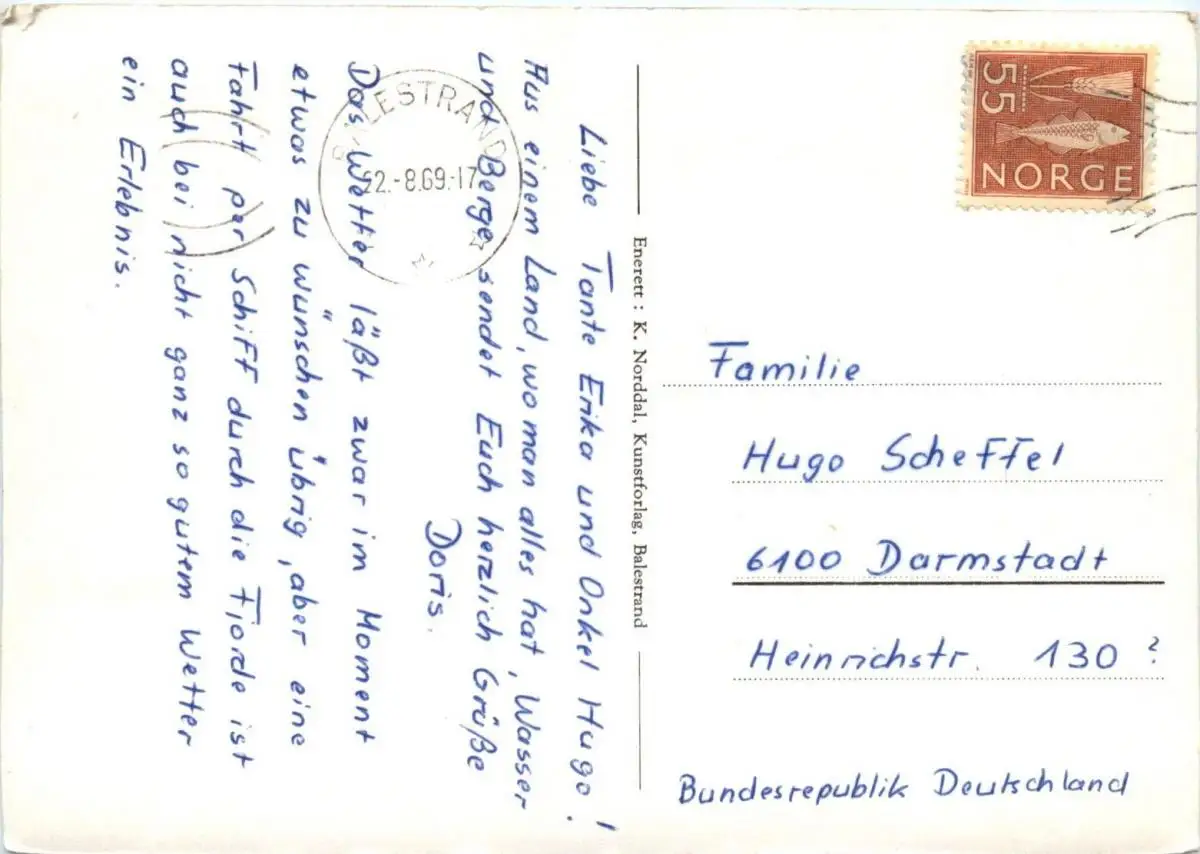 Liebe Tante Erika und Onkel Hugo!
Aus einem Land, wo man alles hat, Wasser
und Berge sendet Euch herzlich Grüße
Doris.
Das Wetter läßt zwar im Moment
etwas zu wünschen übrig, aber eine
Fahrt per Schiff durch die Fjorde ist
auch bei nicht ganz so gutem Wetter
ein Erlebnis.
BALESTRAND
22.-8.69.-17
Enerett: K. Norddal, Kunstforlag, Balestrand
55
NORGE
Familie
Hugo Scheffel
6100 Darmstadt
Heinrichstr. 130 ?
Bundesrepublik Deutschland